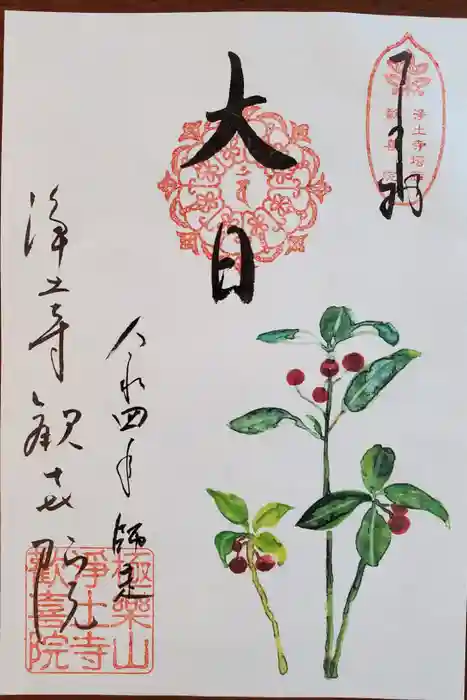 大日
浄土寺塔頭
歓喜院
令和四年 師走
浄土寺 歓喜院
極樂山
浄土寺
歓喜院